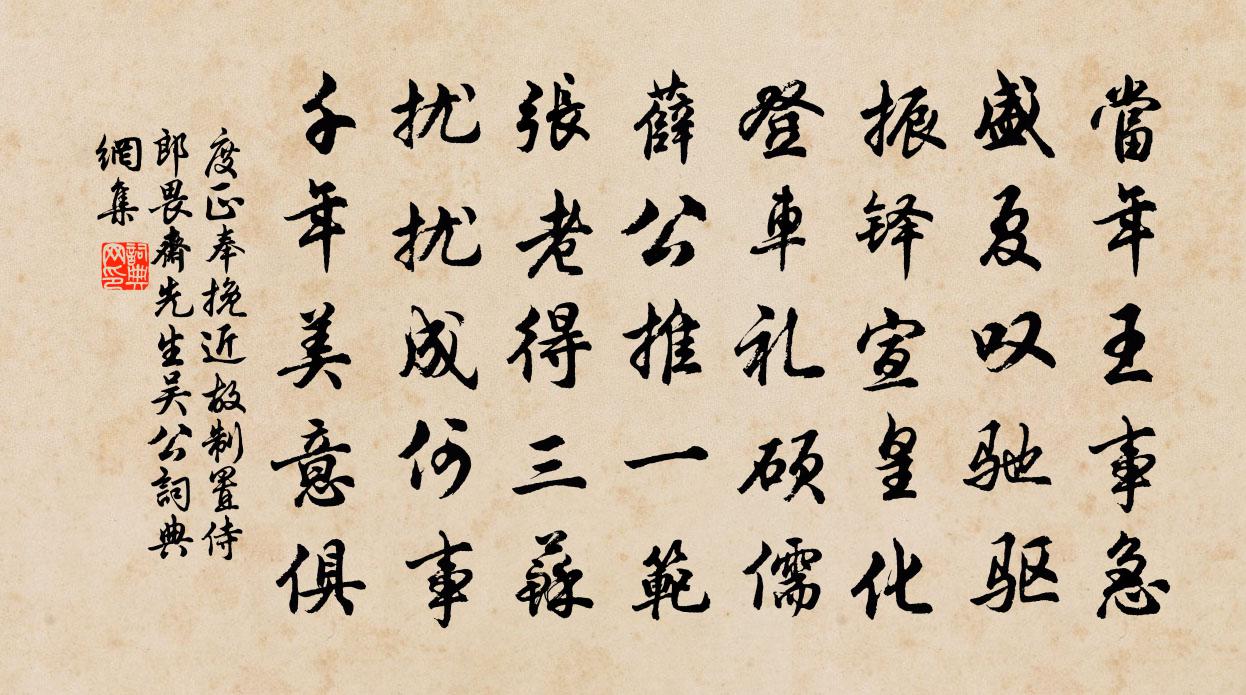 當年王事急
盛夏叹驰驱
振铎宣皇化
登車礼硕儒
薛公推一範
張老得三蘇
扰扰成何事
千年美意俱
度正奉挽近故制置侍
郎畏齋先生吴公詞典
網集
詞典網印